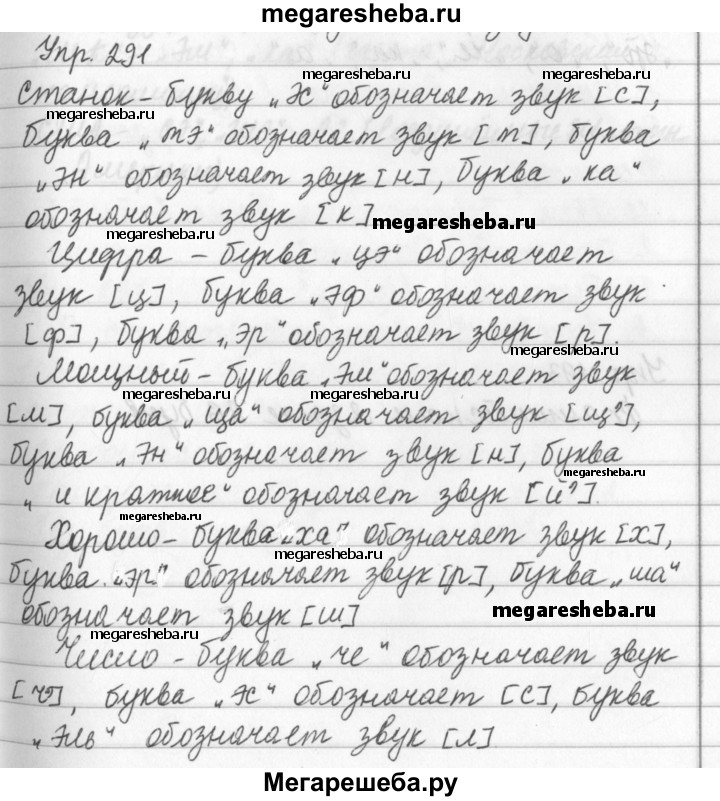 megaresheba.ru
Упр. 291
megaresheba.ru
Станок – букву „Эс“ обозначает звук [с],
megaresheba.ru
буква „тэ“ обозначает звук [т], буква
„Эн“ обозначает звук [н], буква „ка“
обозначает звук [к]
megaresheba.ru
megaresheba.ru
Цифра – буква „цэ“ обозначает
звук [ц], буква „эф“ обозначает звук
[ф], буква „эр“ обозначает звук [р].
megaresheba.ru
Мощный – буква „Эм“ обозначает звук
[м], буква „ща“ обозначает звук [щ’],
буква „Эн“ обозначает звук [н], буква
megaresheba.ru
„и краткое“ обозначает звук [й’].
megaresheba.ru
Хорошо – буква „ха“ обозначает звук [х],
буква „эр“ обозначает звук [р], буква „ша“
обозначает звук [ш]
megaresheba.ru
megaresheba.ru
Число – буква „че“ обозначает звук
[ч’], буква „Эс“ обозначает [с], буква
„Эль“ обозначает звук [л]
Мегарешеба.ру